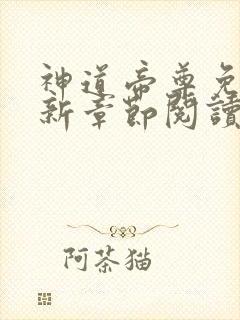 神道帝尊免
新章節閱讀
阿茶猫